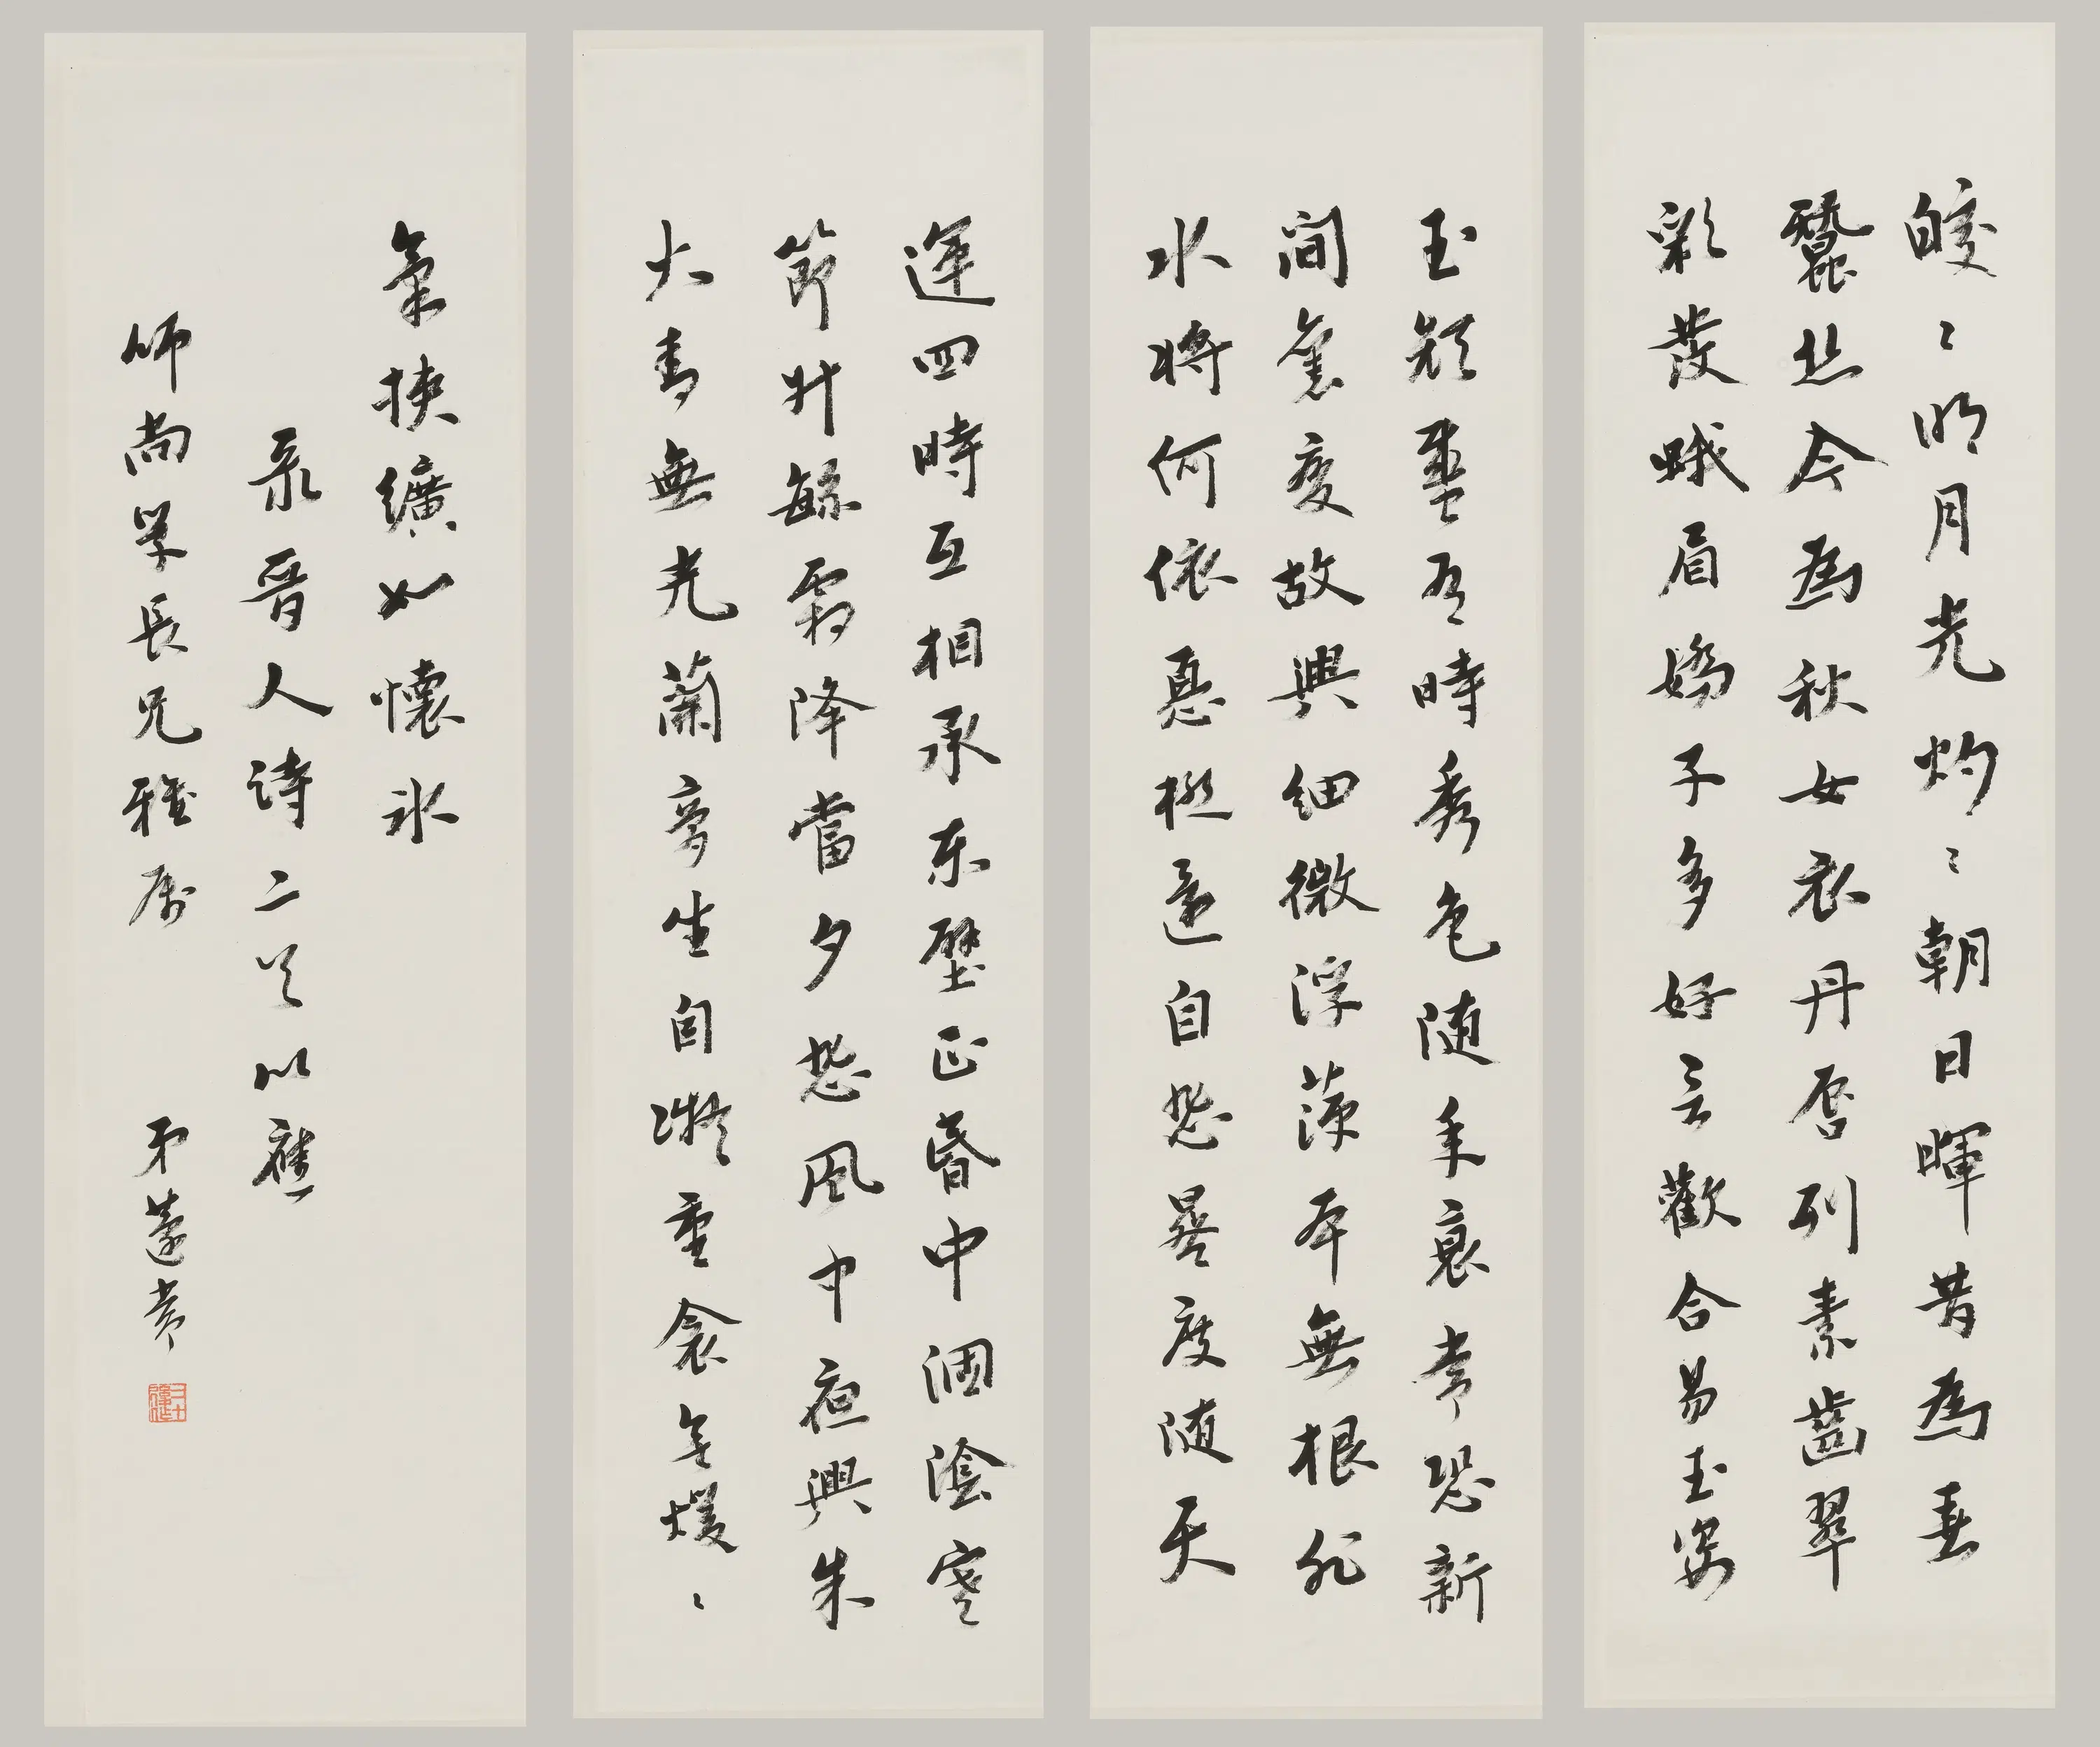 皎〻明月光灼〻朝日暉昔為春
蠶絲今為秋女衣丹唇列素齒翠
彩發蛾眉嬌子多好言歡合易玉姿
玉顏盛有時秀色隨年衰常恐新
間舊變故興細微浮萍本無根非
水將何依憂極還自悲晷度隨天
運四時互相承東壁正昏中涸陰寒
節升繁霜降當夕悲風中夜興朱
火青無光蘭膏坐自凝重衾無煖
氣挾纊如懷冰
录晉人詩二首以應
師尚學長兄雅屬 弟蘧常